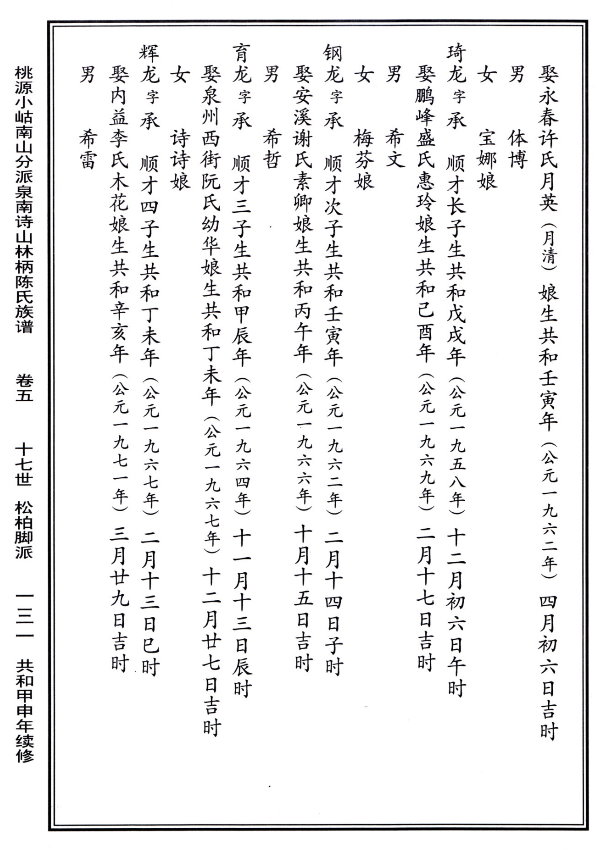 娶永春许氏月英(月清)娘生共和壬寅年(公元一九六二年)四月初六日吉时
男 体博
女 宝娜娘
琦龙字承 顺才长子生共和戊戌年(公元一九五八年)十二月初六日午时
娶鹏峰盛氏惠玲娘生共和己酉年(公元一九六九年)二月十七日吉时
男 希文
女 梅芬娘
钢龙字承 顺才次子生共和壬寅年(公元一九六二年)二月十四日子时
娶安溪谢氏素卿娘生共和丙午年(公元一九六六年)十月十五日吉时
男 希哲
育龙字承 顺才三子生共和甲辰年(公元一九六四年)十一月十三日辰时
娶泉州西街阮氏幼华娘生共和丁未年(公元一九六七年)十二月廿七日吉时
女 诗诗娘
辉龙字承 顺才四子生共和丁未年(公元一九六七年)二月十三日巳时
娶内益李氏木花娘生共和辛亥年(公元一九七一年)三月廿九日吉时
男 希雷
桃源小岵南山分派泉南诗山林柄陈氏族谱 卷五 十七世 松柏脚派 一三一 共和甲申年续修